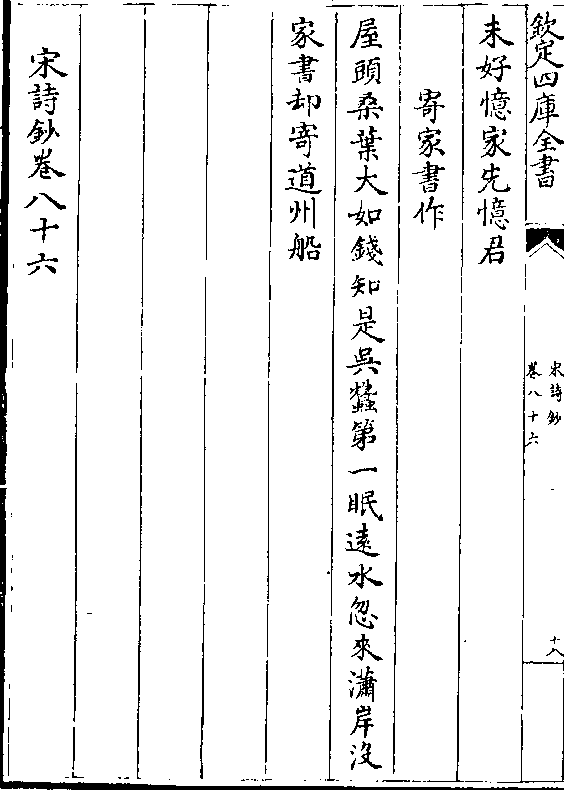 欽定四庫全書
宋詩鈔
卷八十六
十八
未好憶家先憶君
寄家書作
屋頭桑葉大如錢知是吳蠶第一眠遠水忽來瀟岸没
家書却寄道州船
宋詩鈔卷八十六